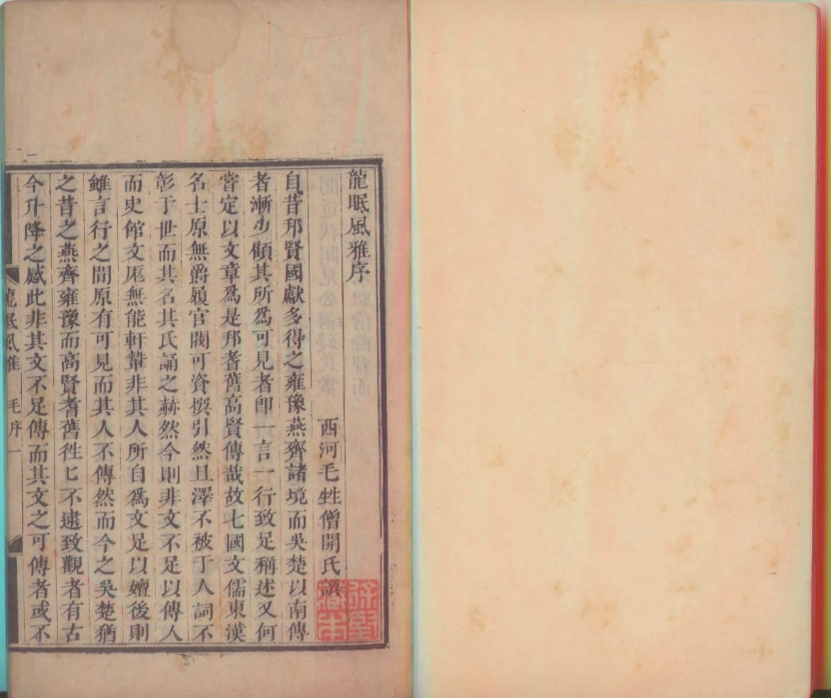 龍眠風雅序
西河毛甡僧開氏譔
自昔邦賢國獻多得之雍豫燕齊諸境而吳楚以南傳
者漸少顧其所為可見者卽一言一行致足稱述又何
嘗定以文章為是邦耆舊高賢傳哉故七國文儒東漢
名士原無爵履官閥可資撰引然且澤不被于人詞不
彰于世而其名其氏誦之赫然今則非文不足以傳人
而史館文凥無能軒輊非其人所自為文足以嬗後則
雖言行之間原有可見而其人不傳然而今之吳楚猶
之昔之燕齊雍豫而高賢耆舊徃匕不逮致觀者有古
今升降之感此非其文不足傳而其文之可傳者或不
龍眠風雅
毛序
一